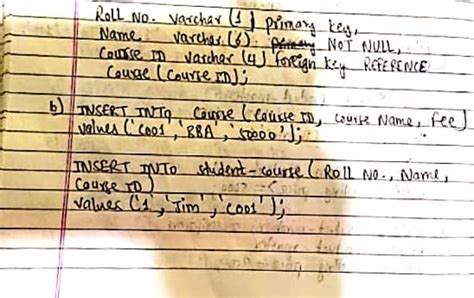 Roll No. varchar (1) primary key,
Name varchar (6) primary NOT NULL,
Course ID varchar (4) foreign key REFERENCE
Course (Course ID);
b) INSERT INTO Course (Course ID, Course Name, Fee)
values ('C001', 'BBA', '50000');
INSERT INTO student-course (Roll No., Name,
Course ID)
values ('1', 'Jim', 'C001');